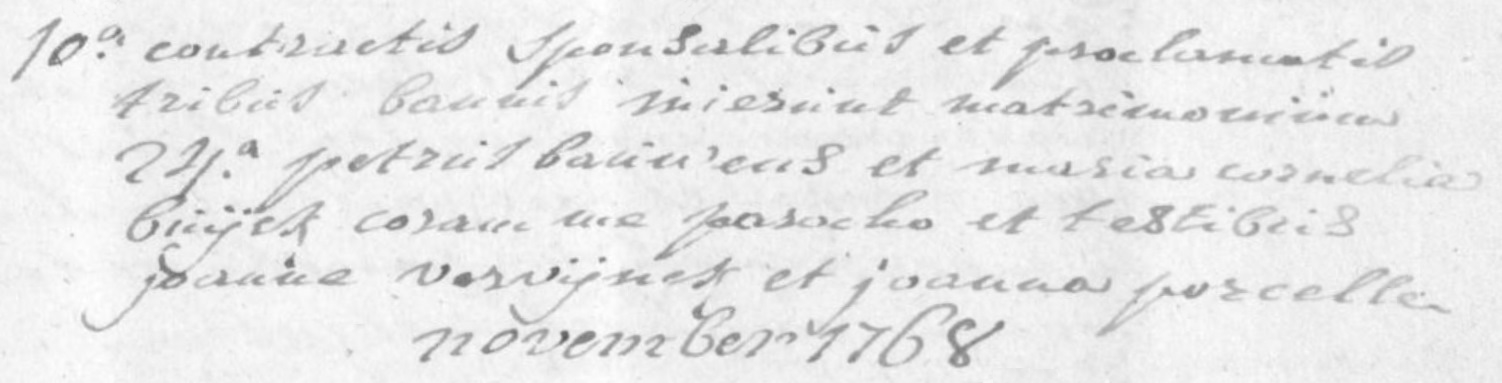 10.a contractis sponsalibus et proclamatis
tribus bannis inierunt matrimonium
24.a petrus bauwens et maria cornelia
buijck coram me parocho et testibus
joanne vervijnck et joanna porcelle
november 1768